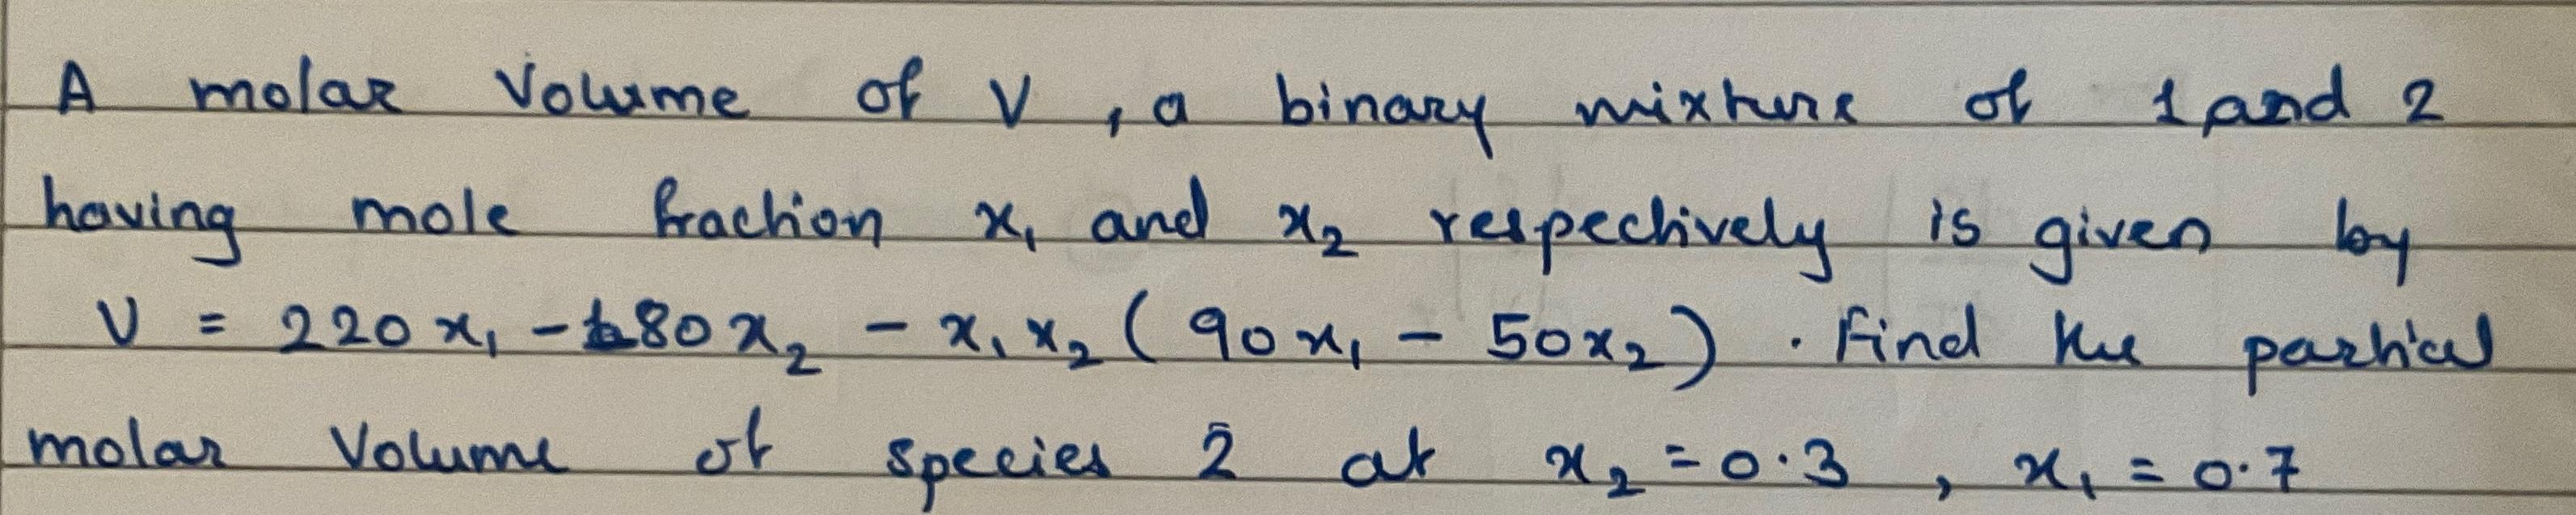 A molar Volume of V, a binary mixture of 1 and 2
having mole fraction x₁ and x₂ respectively is given by
V = 220x₁ - 80x₂ - x₁x₂(90x₁ - 50x₂). Find the partial
molar Volume of species 2 at x₂ = 0.3, x₁ = 0.7